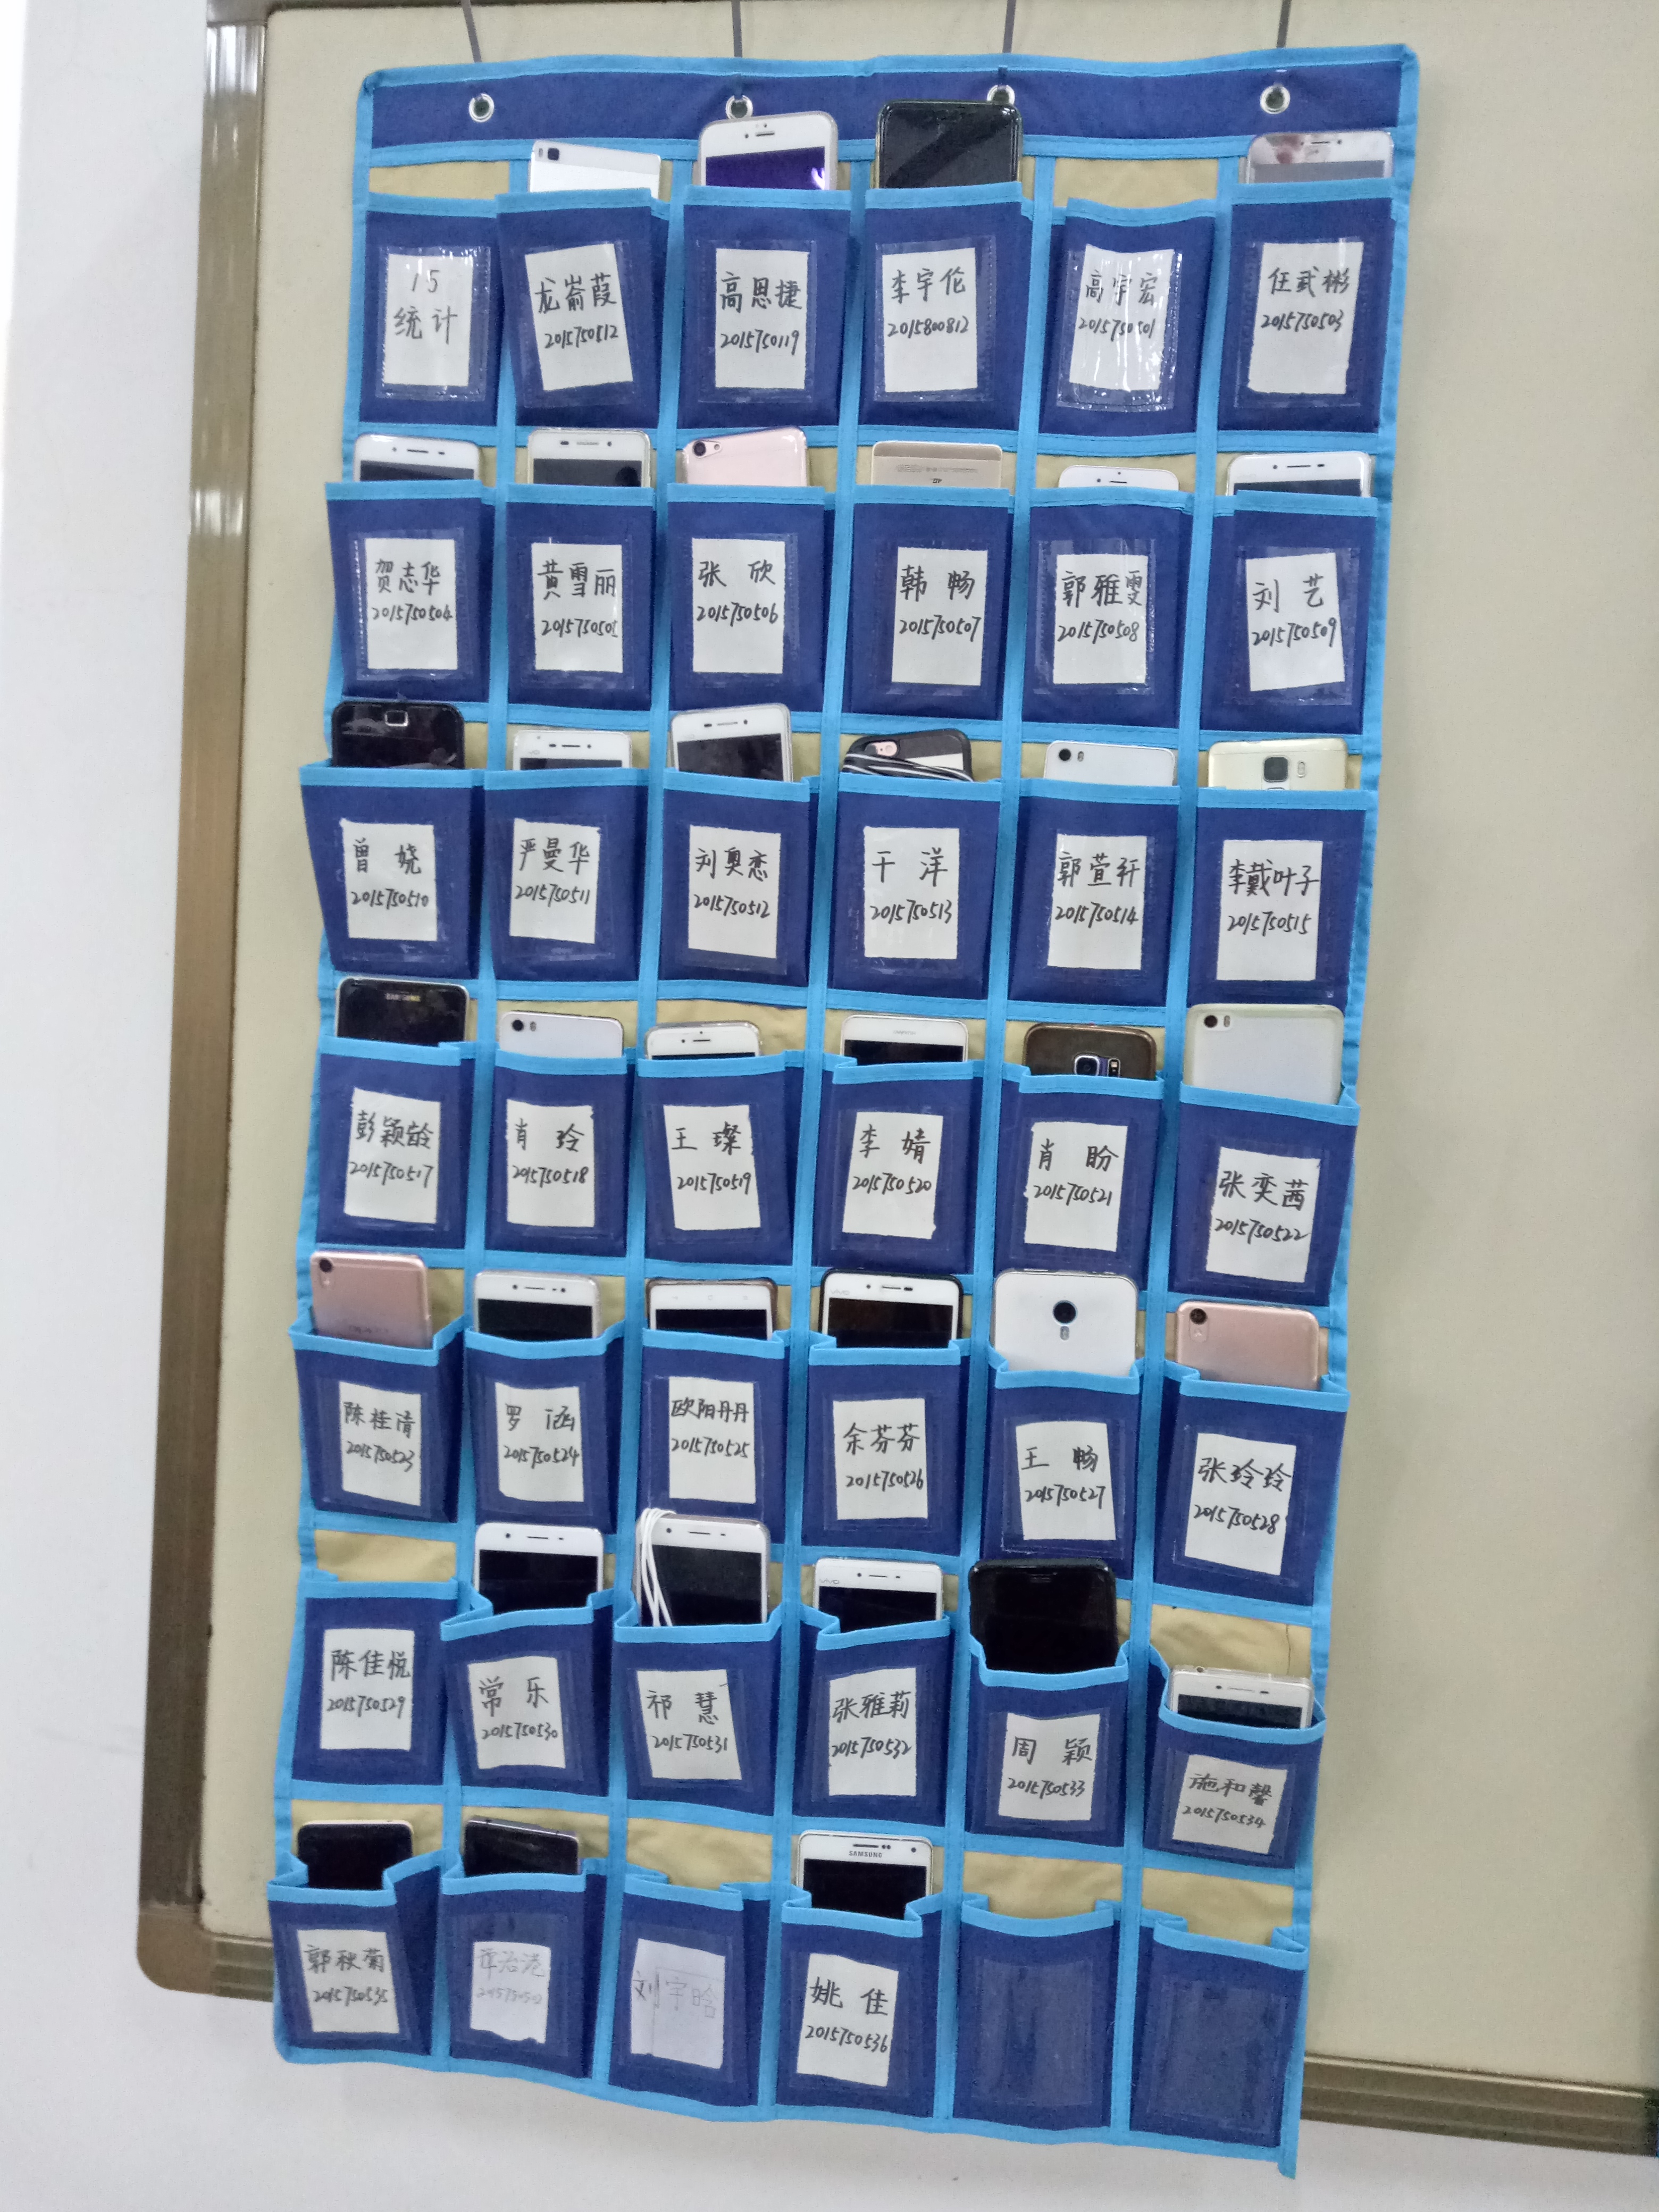 15
统计
龙嵛葭
2015750512
高恩捷
2015750119
李宇伦
2015800812
高宇宏
2015750501
任武彬
2015750503
贺志华
2015750504
黄雪丽
2015750505
张欣
2015750506
韩畅
2015750507
郭雅雯
2015750508
刘艺
2015750509
曾娆
2015750510
严曼华
2015750511
刘奥恋
2015750512
干洋
2015750513
郭萱轩
2015750514
李戴叶子
2015750515
SAMSUNG
彭颖龄
2015750517
肖玲
2015750518
王璨
2015750519
李婧
2015750520
肖盼
2015750521
张奕茜
2015750522
陈桂清
2015750523
罗涵
2015750524
欧阳丹丹
2015750525
vivo
余芬芬
2015750526
王畅
2015750527
张玲玲
2015750528
陈佳悦
2015750529
常乐
2015750530
祁慧
2015750531
vivo
张雅莉
2015750532
周颖
2015750533
施和馨
2015750534
郭秧菊
2015750535
刘宇晗
SAMSUNG
姚佳
2015750536